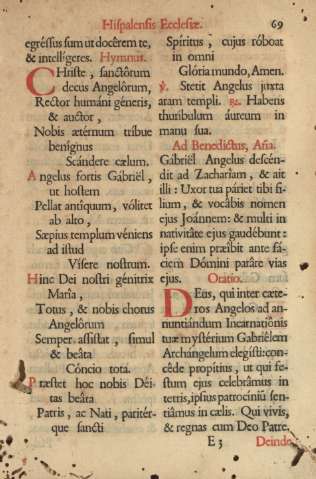 Hispalensis Ecclesiæ. 69
egréssus sum ut docêrem te,
& intellígeres. Hymnus.
CHriste, sanctórum
decus Angelôrum,
Rector humáni géneris,
& auctor,
Nobis ætérnum tríbue
benígnus
Scándere cælum.
Angelus fortis Gabriël,
ut hostem
Pellat antíquum, vólitet
ab alto,
Sæpius templum véniens
ad istud
Vísere nostrum.
Hinc Dei nostri génitrix
María,
Totus, & nobis chorus
Angelôrum
Semper assístat, simul
& beâta
Cóncio tota.
Præstet hoc nobis Déi-
tas beâta
Patris, ac Nati, paritér-
que sancti
Spíritus, cujus róboat
in omni
Glória mundo, Amen.
℣. Stetit Angelus juxta
aram templi. ℟. Habens
thuríbulum áureum in
manu sua.
Ad Benedictus, Aña.
Gabriêl Angelus descén-
dit ad Zachariam, & ait
illi: Uxor tua páriet tibi fi-
lium, & vocâbis nomen
ejus Joánnem: & multi in
nativitâte ejus gaudêbunt:
ipse enim præíbit ante fá-
ciem Dómini parâre vias
ejus. Oratio.
DEus, qui inter cæte-
ros Angelos ad an-
nuntiándum Incarnatiônis
tuæ mystérium Gabriêlem
Archángelum elegísti: con-
cêde propítius, ut qui fe-
stum ejus celebrâmus in
terris, ipsíus patrocíniũ sen-
tiâmus in cælis. Qui vivis,
& regnas cum Deo Patre.
E 3 Deinde